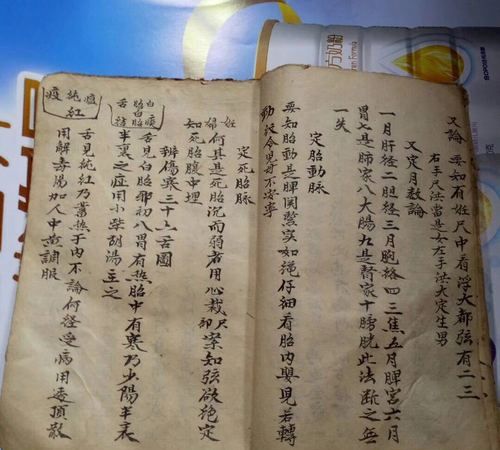 又論 要知有姙尺中看浮大都弦有二三
右手尺洪當是女左手洪大定生男
又定月数論
一月肝经二胆经三月胞络四三焦五月脾宮六月
胃七是肺家八大腸九是腎家十膀胱此法断之無
一失
定胎動脉
要知胎動是脾関緊实如绳仔细看胎内嬰兒若轉
動致令兒母不安寧
定死胎脉
姙婦何具是死胎沉而弱者用心裁尺案知弦欲绝定
如死胎腹中埋
辨傷寒三十六舌圖
舌見白胎邪初入胃有热胎中有寒乃少陽半表
半裏之症用小柴胡湯主之
純红
舌見純红乃蓄热于内不論何経受病用透頂散
用解毒陽加人中黄調服